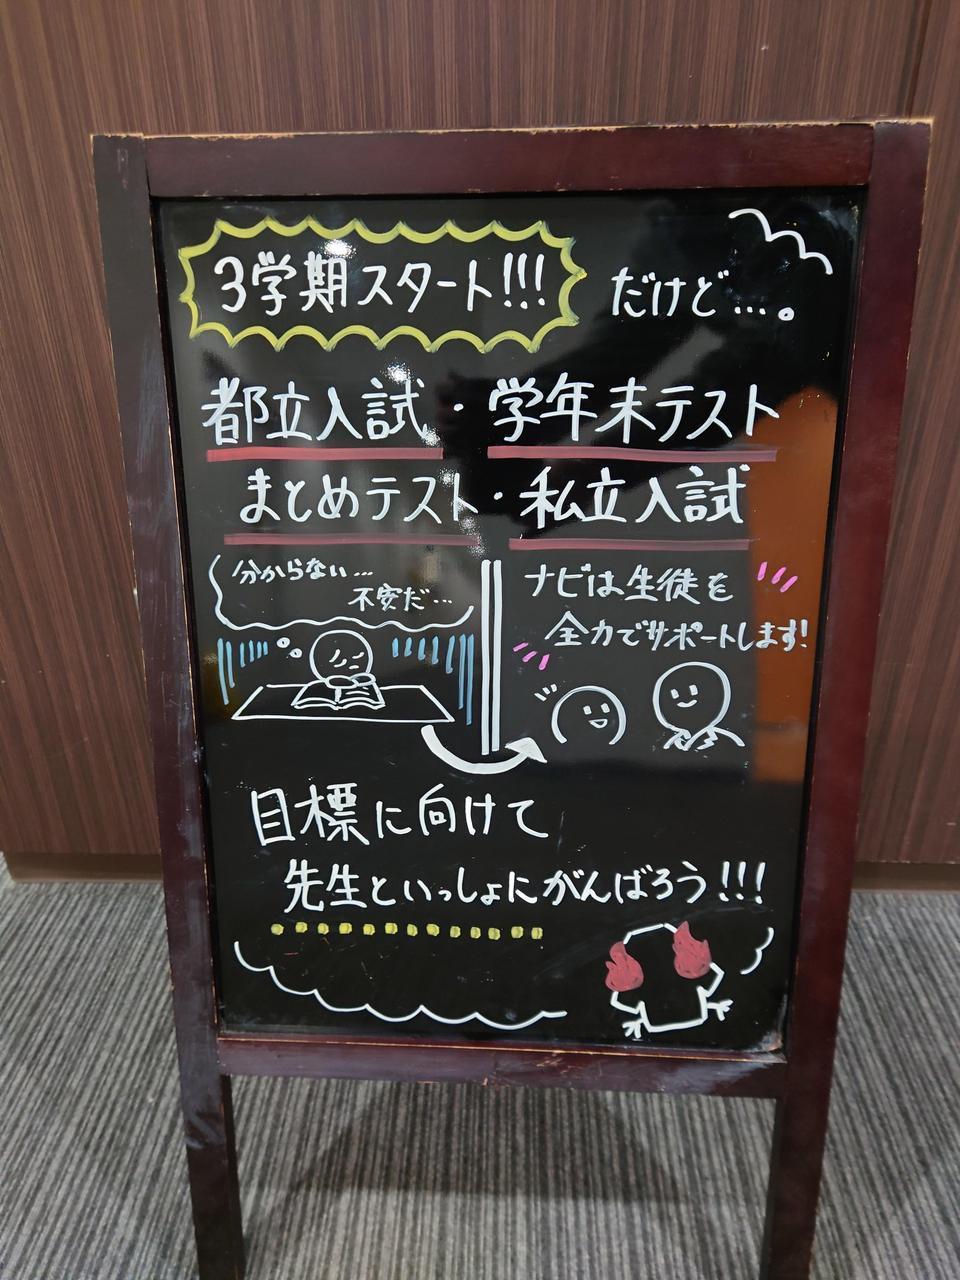 3学期スタート!!! だけど…。
都立入試・学年末テスト
まとめテスト・私立入試
分からない…
不安だ…
ナビは生徒を
全力でサポートします!
目標に向けて
先生といっしょにがんばろう!!!